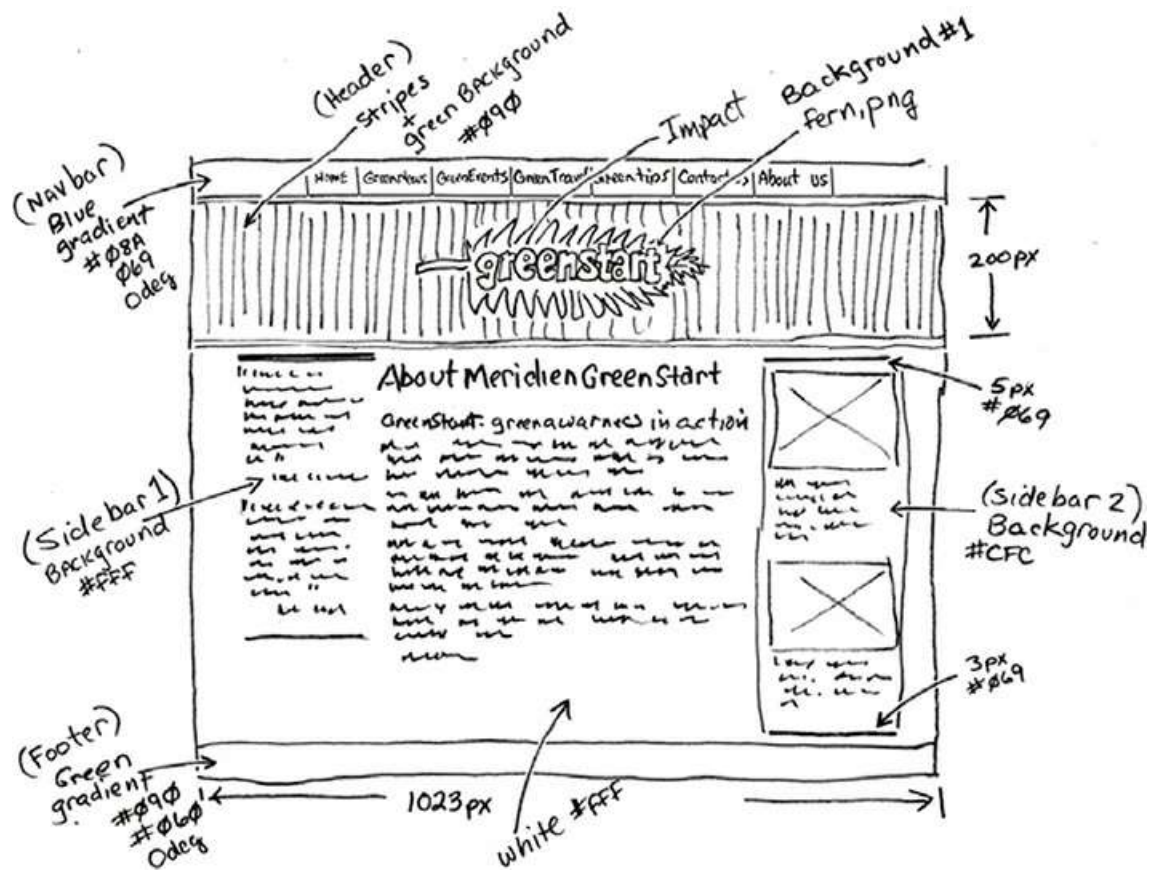 (Header)
stripes
+
green Background
#Ø9Ø
Impact
Background #1
fern.png
(Navbar)
Blue
gradient
#Ø8A
Ø69
Odeg
Home
GreenNews
GreenEvents
GreenTravel
Green tips
Contact us
About us
greenstart
200px
About Meridien GreenStart
GreenStart- green awarness in action
5px
#Ø69
(Sidebar 1)
Background
#fff
(Sidebar 2)
Background
#CFC
3px
#Ø69
(Footer)
Green
gradient
#Ø9Ø
#Ø6Ø
Odeg
1023px
white #fff